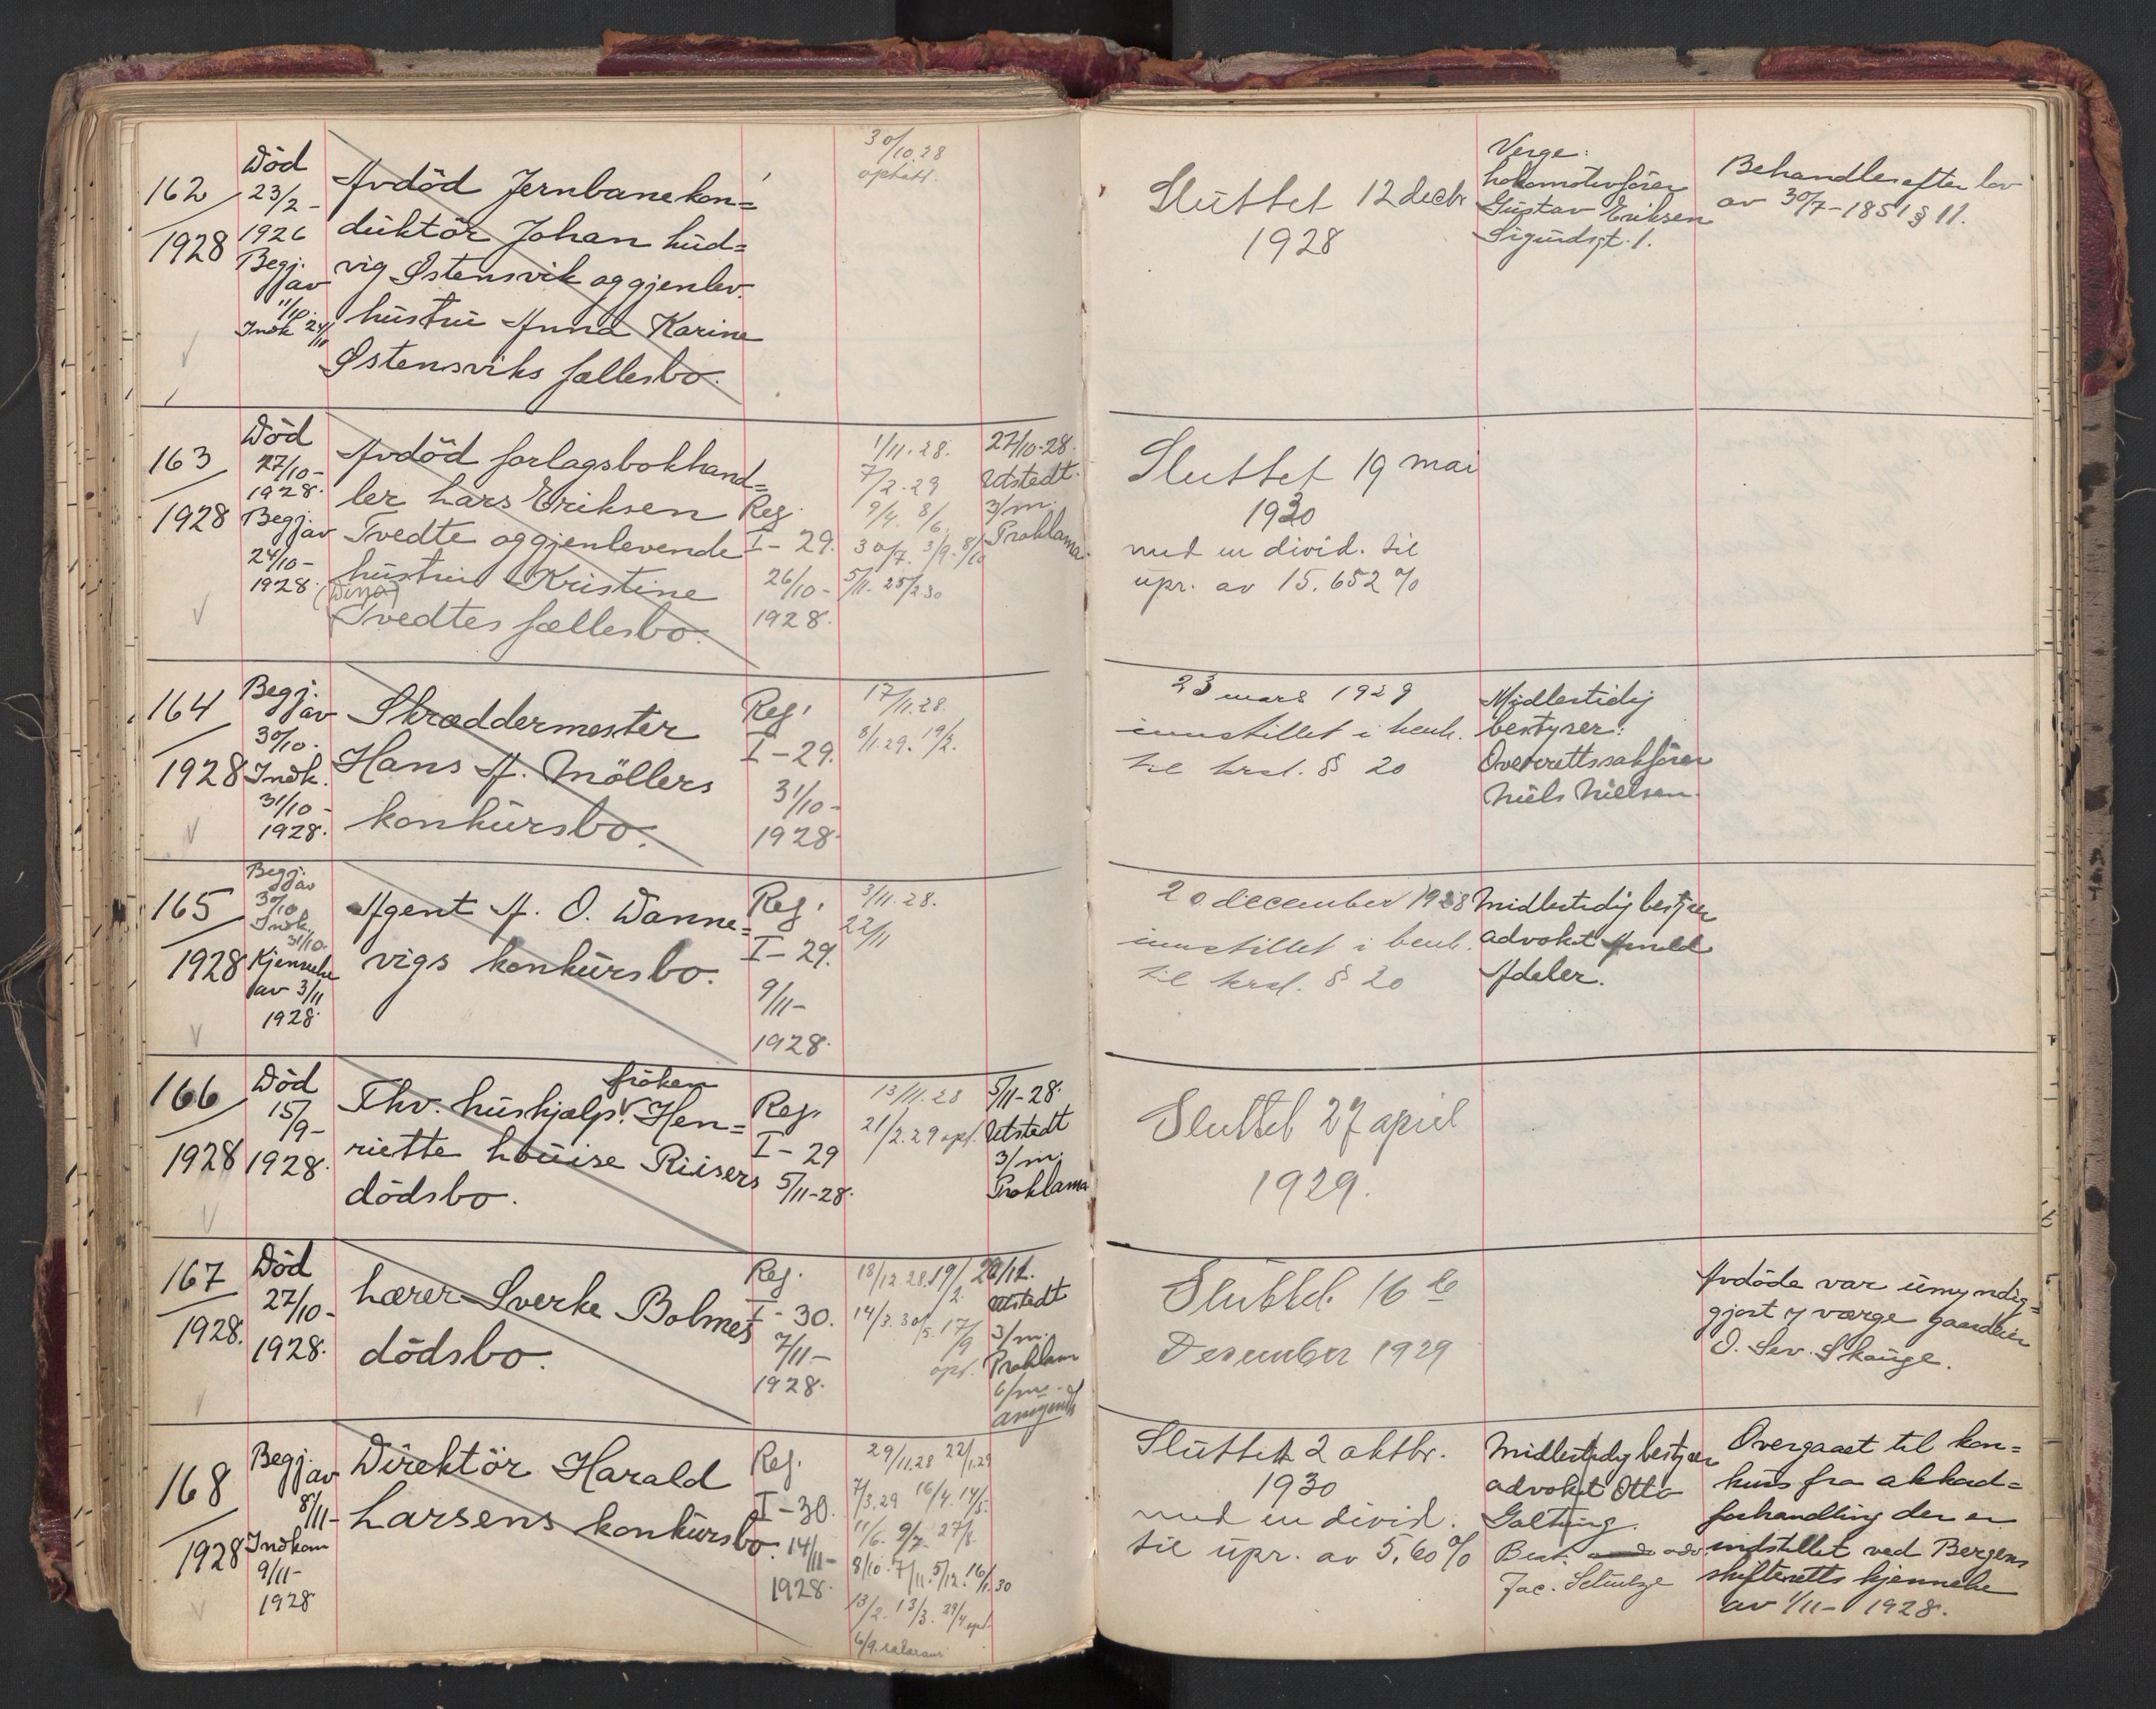 162
1928
Död
23/2-
1926
Begj.
av
11/10.
Indk 24/10
Avdöd Jernbanekon=
duktör Johan Lud=
vig Østensvik og gjenlev.
hustru Anna Karine
Østensviks fællesbo.
30/10.28
Sluttet 12 decbr
1928
Verge:
Lokomotivförer
Gustav Eriksen
Sigurdsgt. 1.
Behandles efter lov
av 30/7-1851 § 11.
163
1928
Död
27/10-
1928.
Begj. av
24/10-
1928.
Avdöd forlagsbokhand=
ler Lars Eriksen
Tvedte og gjenlevende
hustru Kristine
Tvedtes fællesbo.
Reg.
I-29.
26/10-
1928.
1/11.28.
7/2.29
9/4 8/6
30/7. 3/9. 8/10
5/11. 25/2 30
27/10-28.
Utstedt
3/m.
Proklama
Sluttet 19 mai
1930
med en divid. til
upr. av 15.652 %
164
1928
Begj.
av
30/10.
Indk.
31/10-
1928.
Skræddermester
Hans A. Möllers
konkursbo.
Reg.
I-29.
31/10-
1928.
17/11.28.
8/1.29. 19/2.
23 mars 1929
innstillet i henh.
til krsl. § 20
Midlertidig
bestyrer:
Overrettssakförer
Niels Nielsen.
165
1928
Begj.
av
30/10
Indk.
31/10.
Kjennelse
av 3/11
1928.
Agent A. O. Wanne=
vigs konkursbo.
Reg.
I-29.
9/11-
1928.
3/11.28.
22/11
20 december 1928
innstillet i henh.
til krsl. § 20
Midlertidig bestyrer
advokat Arnold
Adeler.
166
1928
Död
15/9-
1928.
fröken
Fhv. hushjælp Hen=
riette Louise Riisers
dödsbo.
Reg.
I-29
5/11-28.
13/11.28
21/2.29 opt.
5/11-28.
Utstedt
3/m.
Proklama
Sluttet 27 april
1929.
167
1928.
Död
27/10-
1928.
Lærer Sverke Bolmes
dödsbo.
Reg.
I-30.
7/11-
1928.
18/12.28. 19/2.
14/3. 30/5. 17/9
opt.
Utstedt
3/m.
Proklam
Sluttet 16 de
Desember 1929
Avdöde var umyndig=
gjort & værge gaardeier
O. Sev. Skauge.
168
1928
Begj.
av
8/11-
Indkom
9/11-
1928
Direktör Harald
Larsens konkursbo.
Reg.
I-30.
14/11-
1928.
29/11.28 22/1.29
7/3.29 16/4. 14/5.
11/6. 9/7. 27/8.
8/10. 7/11. 5/12. 16/1.30
13/2. 13/3. 29/4 opt.
6/9.
Sluttet 2 oktbr.
1930
med en divid.
til upr. av 5,60 %
Midlertidig bestyrer
advokat Otto
Galtung.
Best. adv.
Jac. Schutze
Overgaaet til kon=
kurs fra akkord=
forhandling der er
indstillet ved Bergens
skifteretts kjennelse
av 1/11-1928.